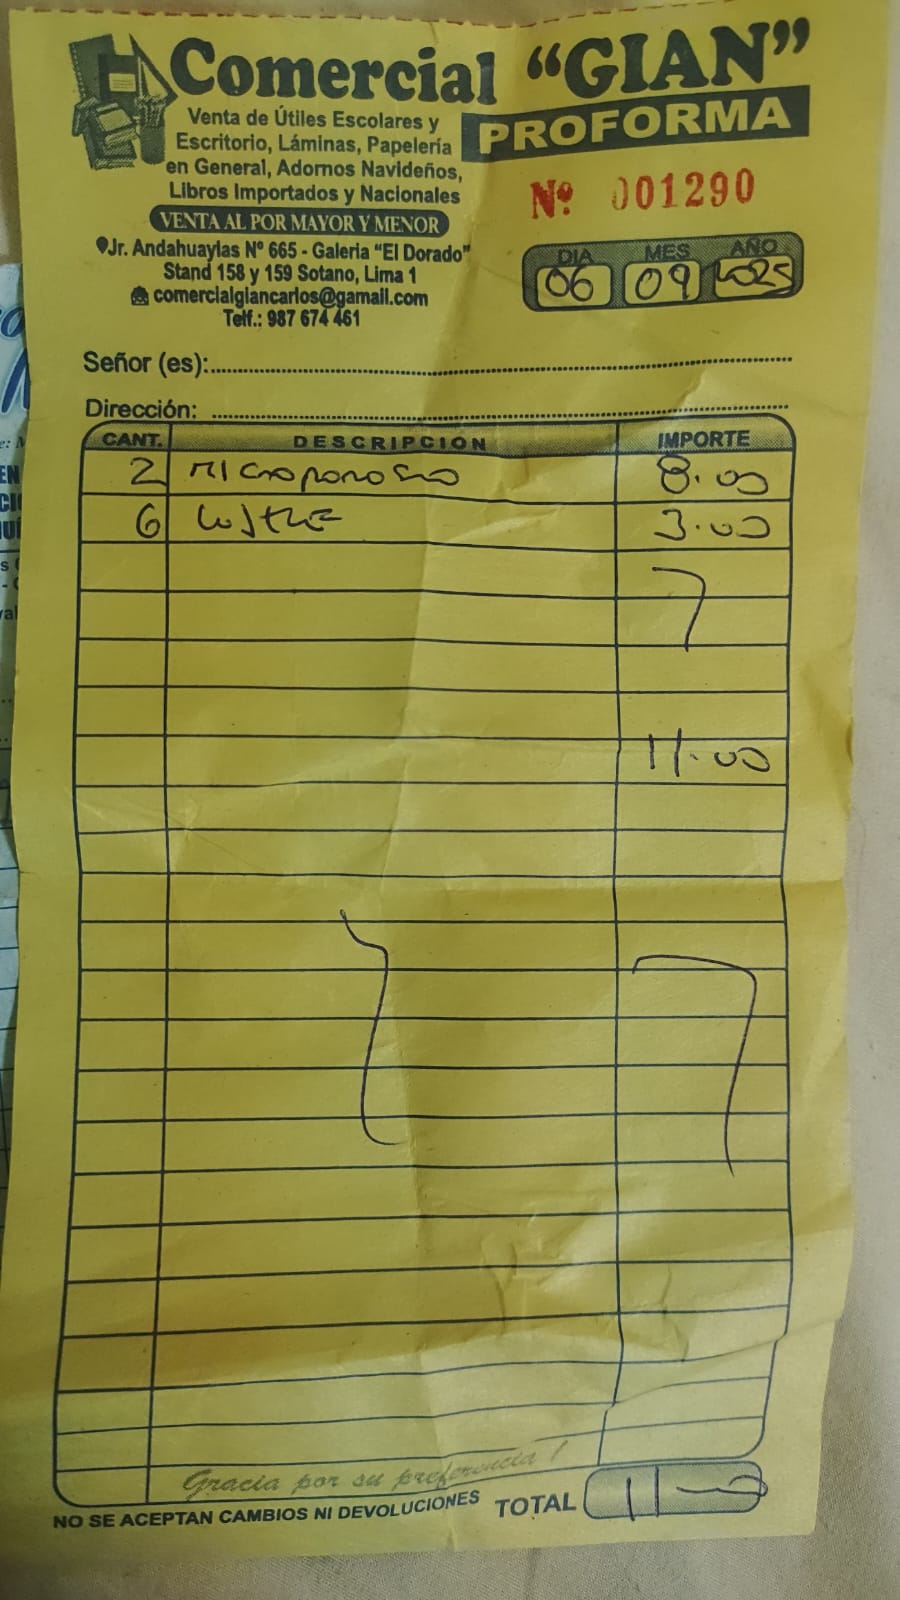 Comercial "GIAN"
Venta de Útiles Escolares y
Escritorio, Láminas, Papelería
en General, Adornos Navideños,
Libros Importados y Nacionales
VENTA AL POR MAYOR Y MENOR
Jr. Andahuaylas Nº 665 - Galeria "El Dorado"
Stand 158 y 159 Sotano, Lima 1
comercialgiancarlos@gamail.com
Telf.: 987 674 461
PROFORMA
Nº 001290
DIA MES AÑO
06 09 2025
Señor (es):
Dirección:
CANT. DESCRIPCION IMPORTE
2 Microporoso 8.00
6 Lustre 3.00
11.00
Gracia por su preferencia !
NO SE ACEPTAN CAMBIOS NI DEVOLUCIONES TOTAL 11.00